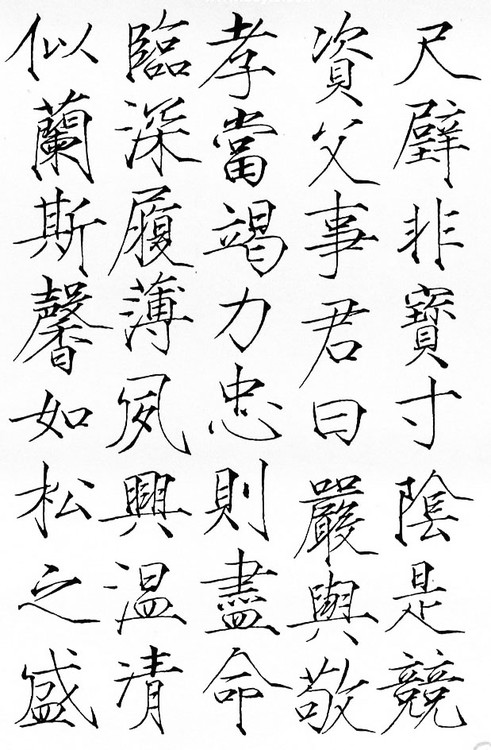 尺璧非寶寸陰是競
資父事君曰嚴與敬
孝當竭力忠則盡命
臨深履薄夙興温清
似蘭斯馨如松之盛